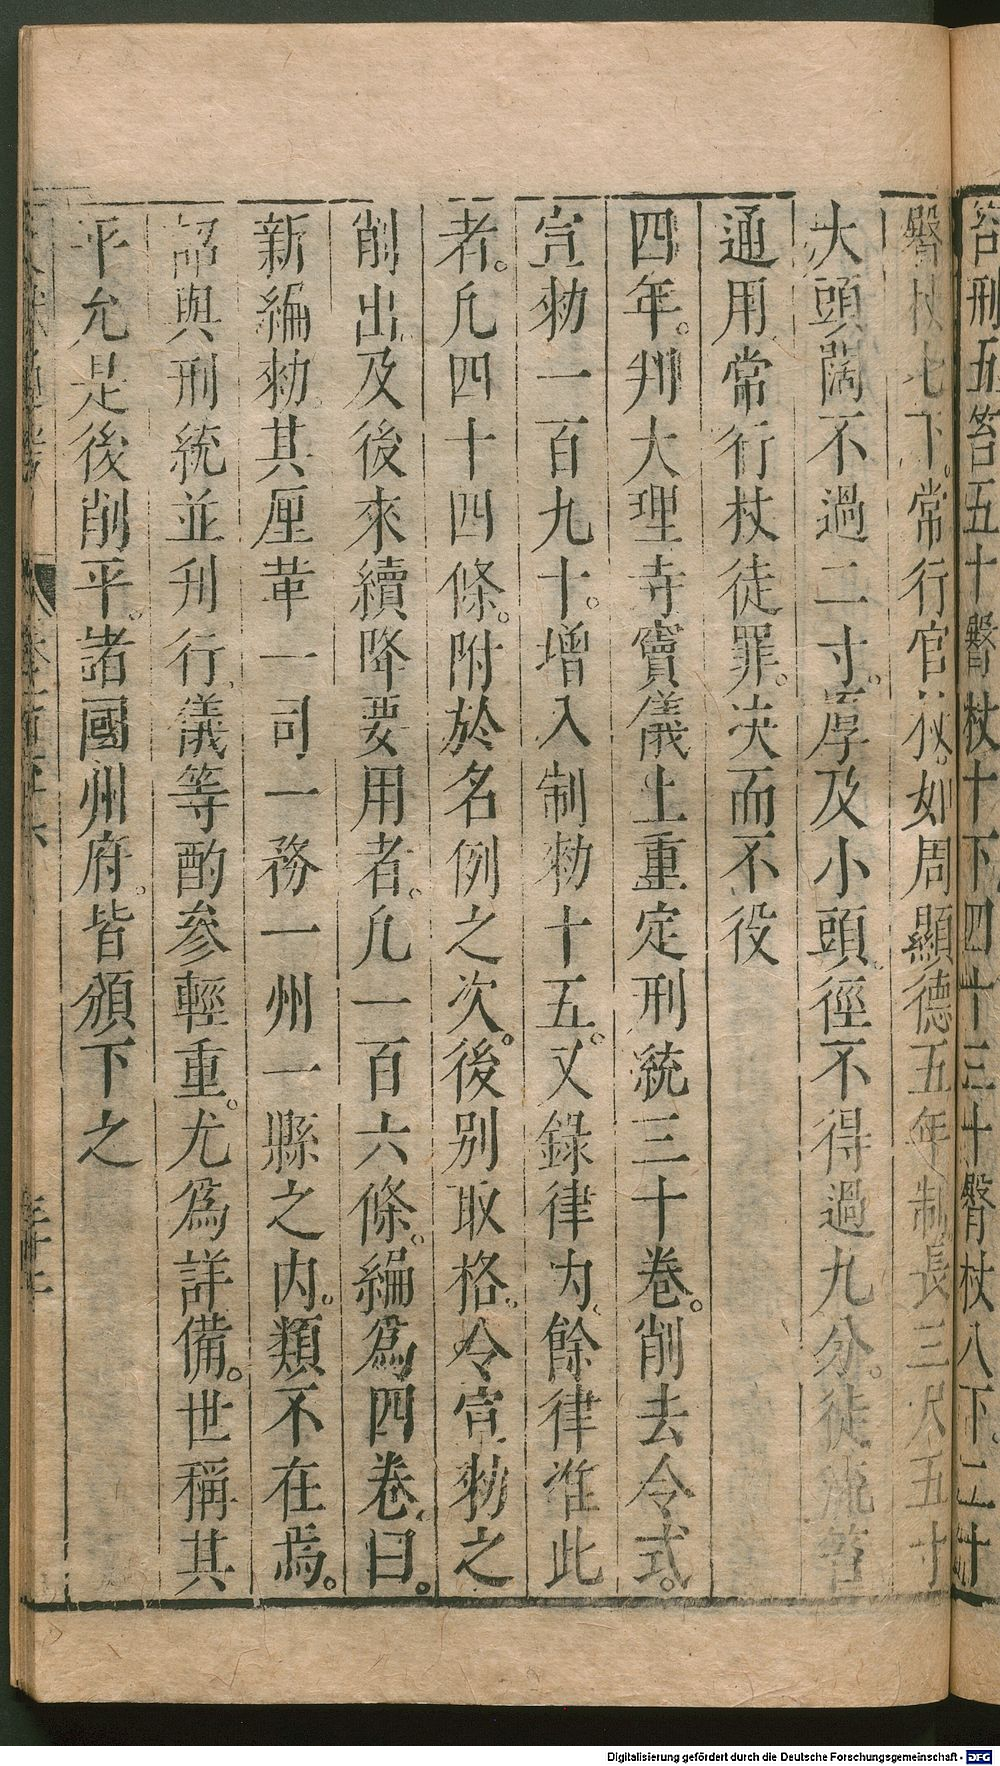 笞刑五笞五十臀杖十下四十三十臀杖八下。二十
臀杖七下。常行官杖。如周顯德五年制長三尺五寸
大頭闊不過二寸。厚及小頭。徑不得過九分。徒流笞
通用常行杖徒罪。決而不役
四年。判大理寺竇儀上重定刑統三十卷。削去令式。
宣勑一百九十。増入制勑十五。又錄律内、餘律准此
者。凡四十四條。附於名例之次。後別取格。令宣勑之
削出及後來續降要用者。凡一百六條。編爲四卷、曰。
新編勑其厘革一司一務一州一縣之内。類不在焉。
詔與刑統並刋行、儀等酌參輕重。尤爲詳備。世稱其
平允是後削平。諸國州府。皆頒下之
Digitalisierung gefördert durch die Deutsche Forschungsgemeinschaft - DFG